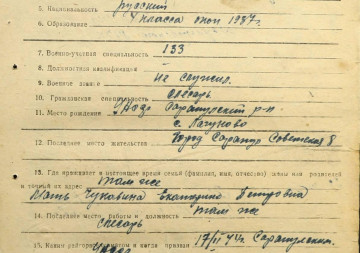 5. Национальность русский
6. Образование 4 класса окон 1937г.
7. Военно-учетная специальность 133
8. Должностная квалификация
9. Военное звание не служил.
10. Гражданская специальность слесарь
11. Место рождения Сарапульский р-н
с. Лагуново
12. Последнее место жительства Город Сарапул Советская 8
13. Где проживает в настоящее время семья (фамилия, имя, отчество) жены или родителей
и точный их адрес там же
Мать Чукавина Екатерина Петровна
14. Последнее место работы и должность там же
слесарь
15. Каким райгорвоенкоматом и когда призван 17/II 41г. Сарапульским